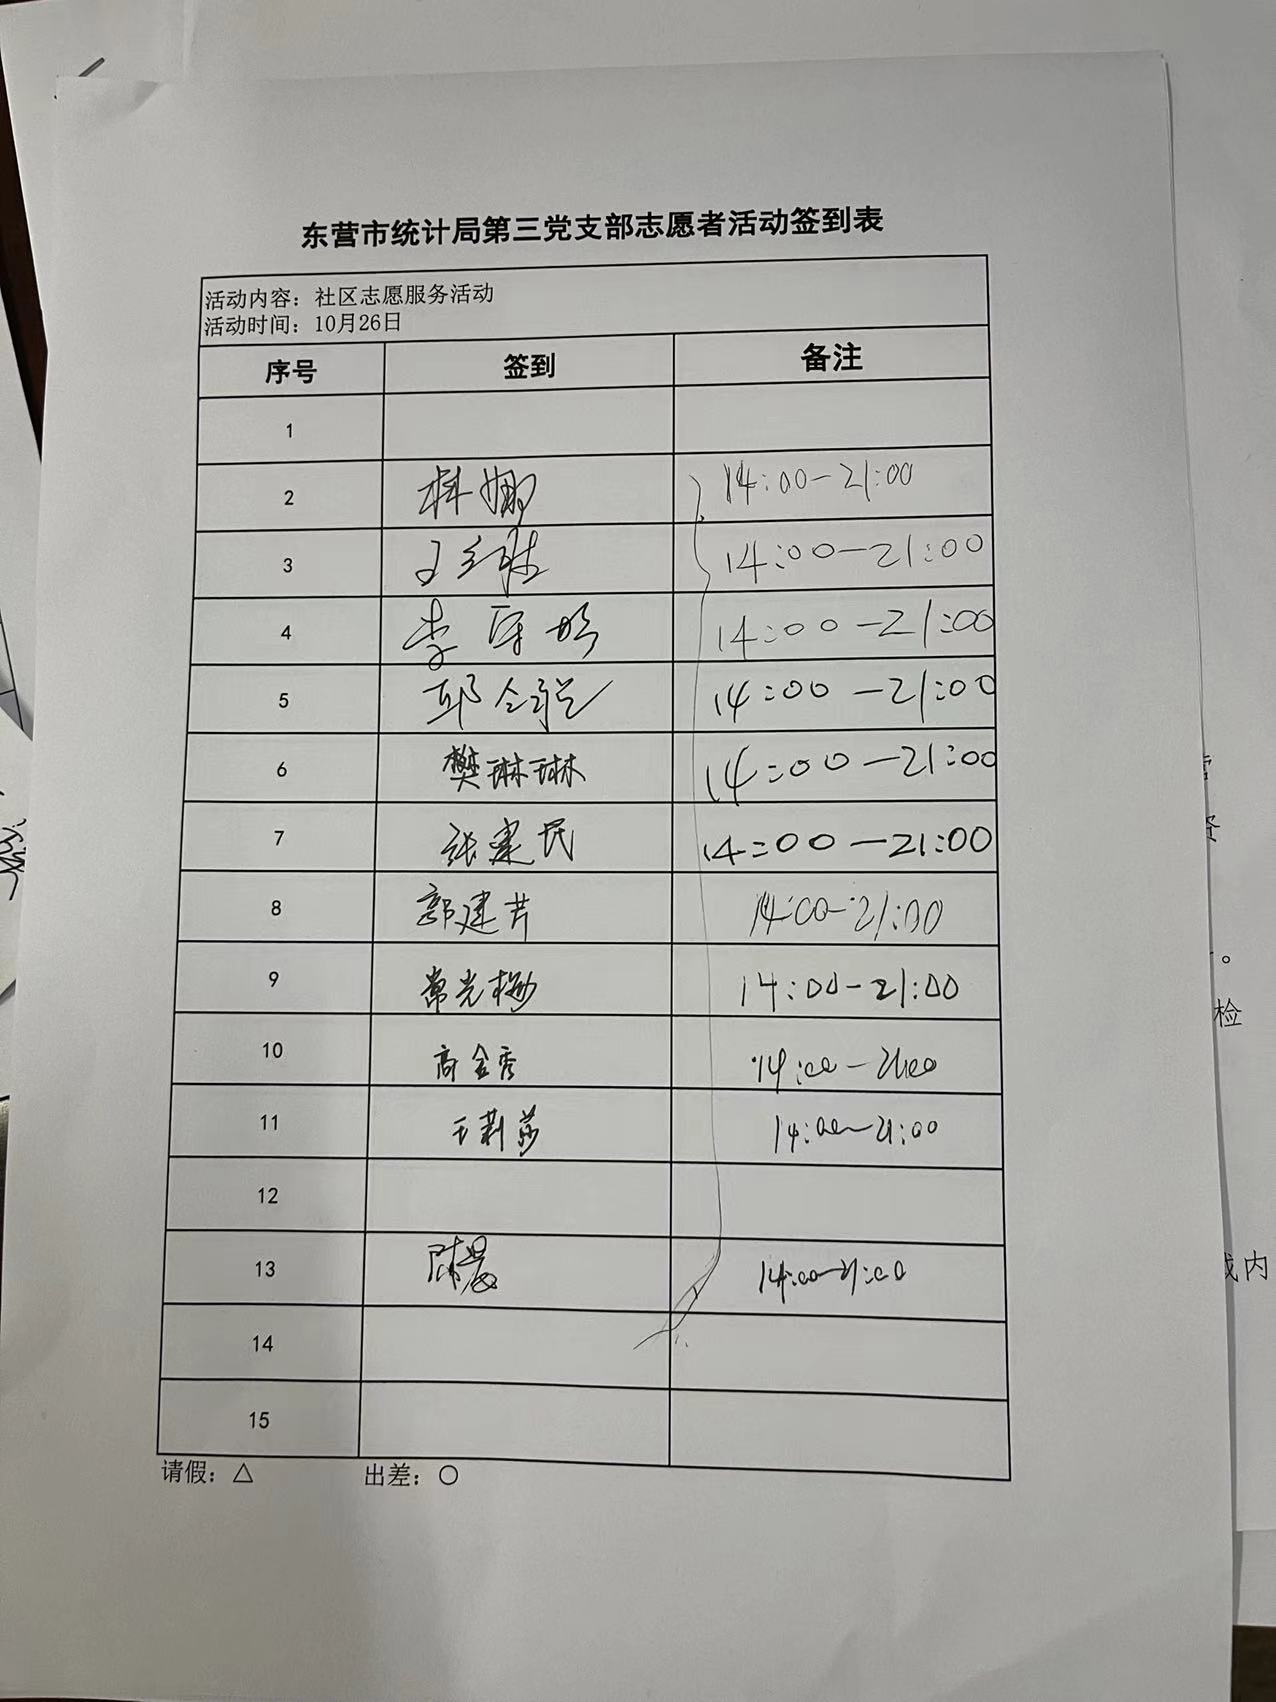 东营市统计局第三党支部志愿者活动签到表
活动内容：社区志愿服务活动
活动时间：10月26日
序号 签到 备注
1
2 14:00-21:00
3 14:00-21:00
4 14:00-21:00
5 14:00-21:00
6 樊琳琳 14:00-21:00
7 张建民 14:00-21:00
8 郭建芳 14:00-21:00
9 常光梅 14:00-21:00
10 高金秀 14:00-21:00
11 王莉莎 14:00-21:00
12
13 14:00-21:00
14
15
请假：△ 出差：○
。
检
内